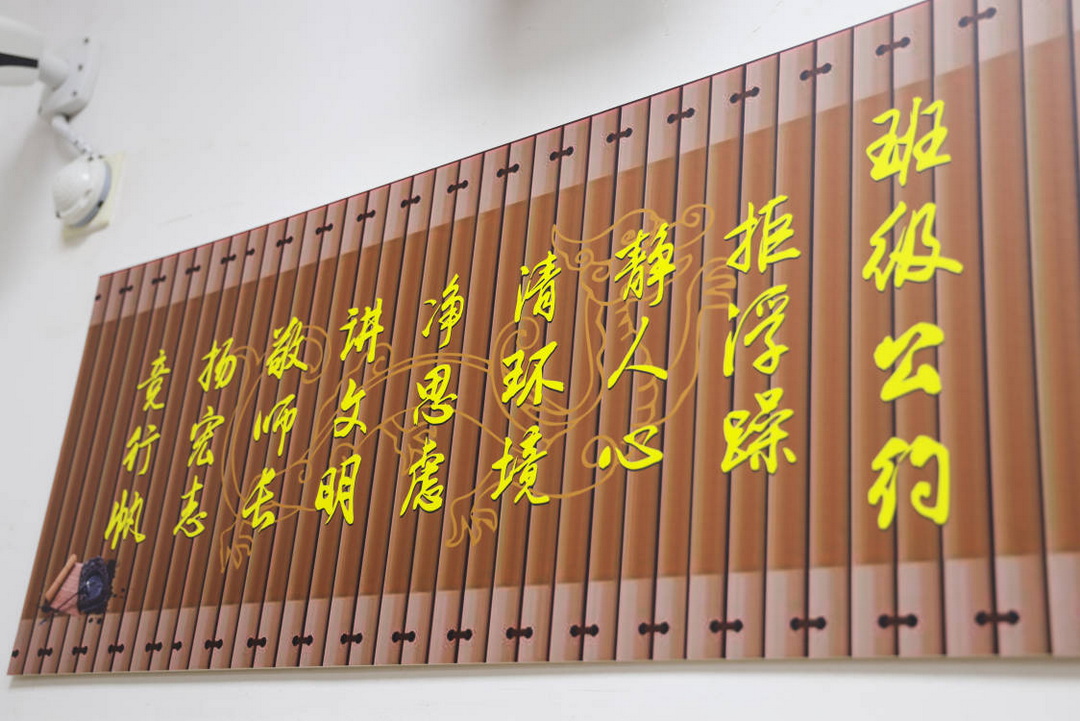 班级公约
拒浮躁
静人心
清环境
净思虑
讲文明
敬师长
扬宏志
竞行帆